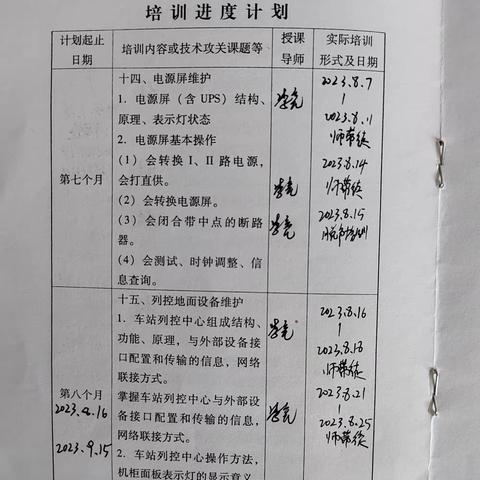 培训进度计划
计划起止
日期
培训内容或技术攻关课题等
授课
导师
实际培训
形式及日期
第七个月
十四、电源屏维护
1. 电源屏（含 UPS）结构、
原理、表示灯状态
2. 电源屏基本操作
（1）会转换 I、II 路电源，
会打直供。
（2）会转换电源屏。
（3）会闭合带中点的断路
器。
（4）会测试、时钟调整、信
息查询。
2023.8.7
2023.8.11
师带徒
2023.8.14
师带徒
2023.8.15
第八个月
2023.8.16
2023.9.15
十五、列控地面设备维护
1. 车站列控中心组成结构、
功能、原理，与外部设备接
口配置和传输的信息，网络
联接方式。
掌握车站列控中心与外部设
备接口配置和传输的信息，
网络联接方式。
2. 车站列控中心操作方法，
机柜面板表示灯的显示意义
2023.8.16
2023.8.18
师带徒
2023.8.21
2023.8.25
师带徒